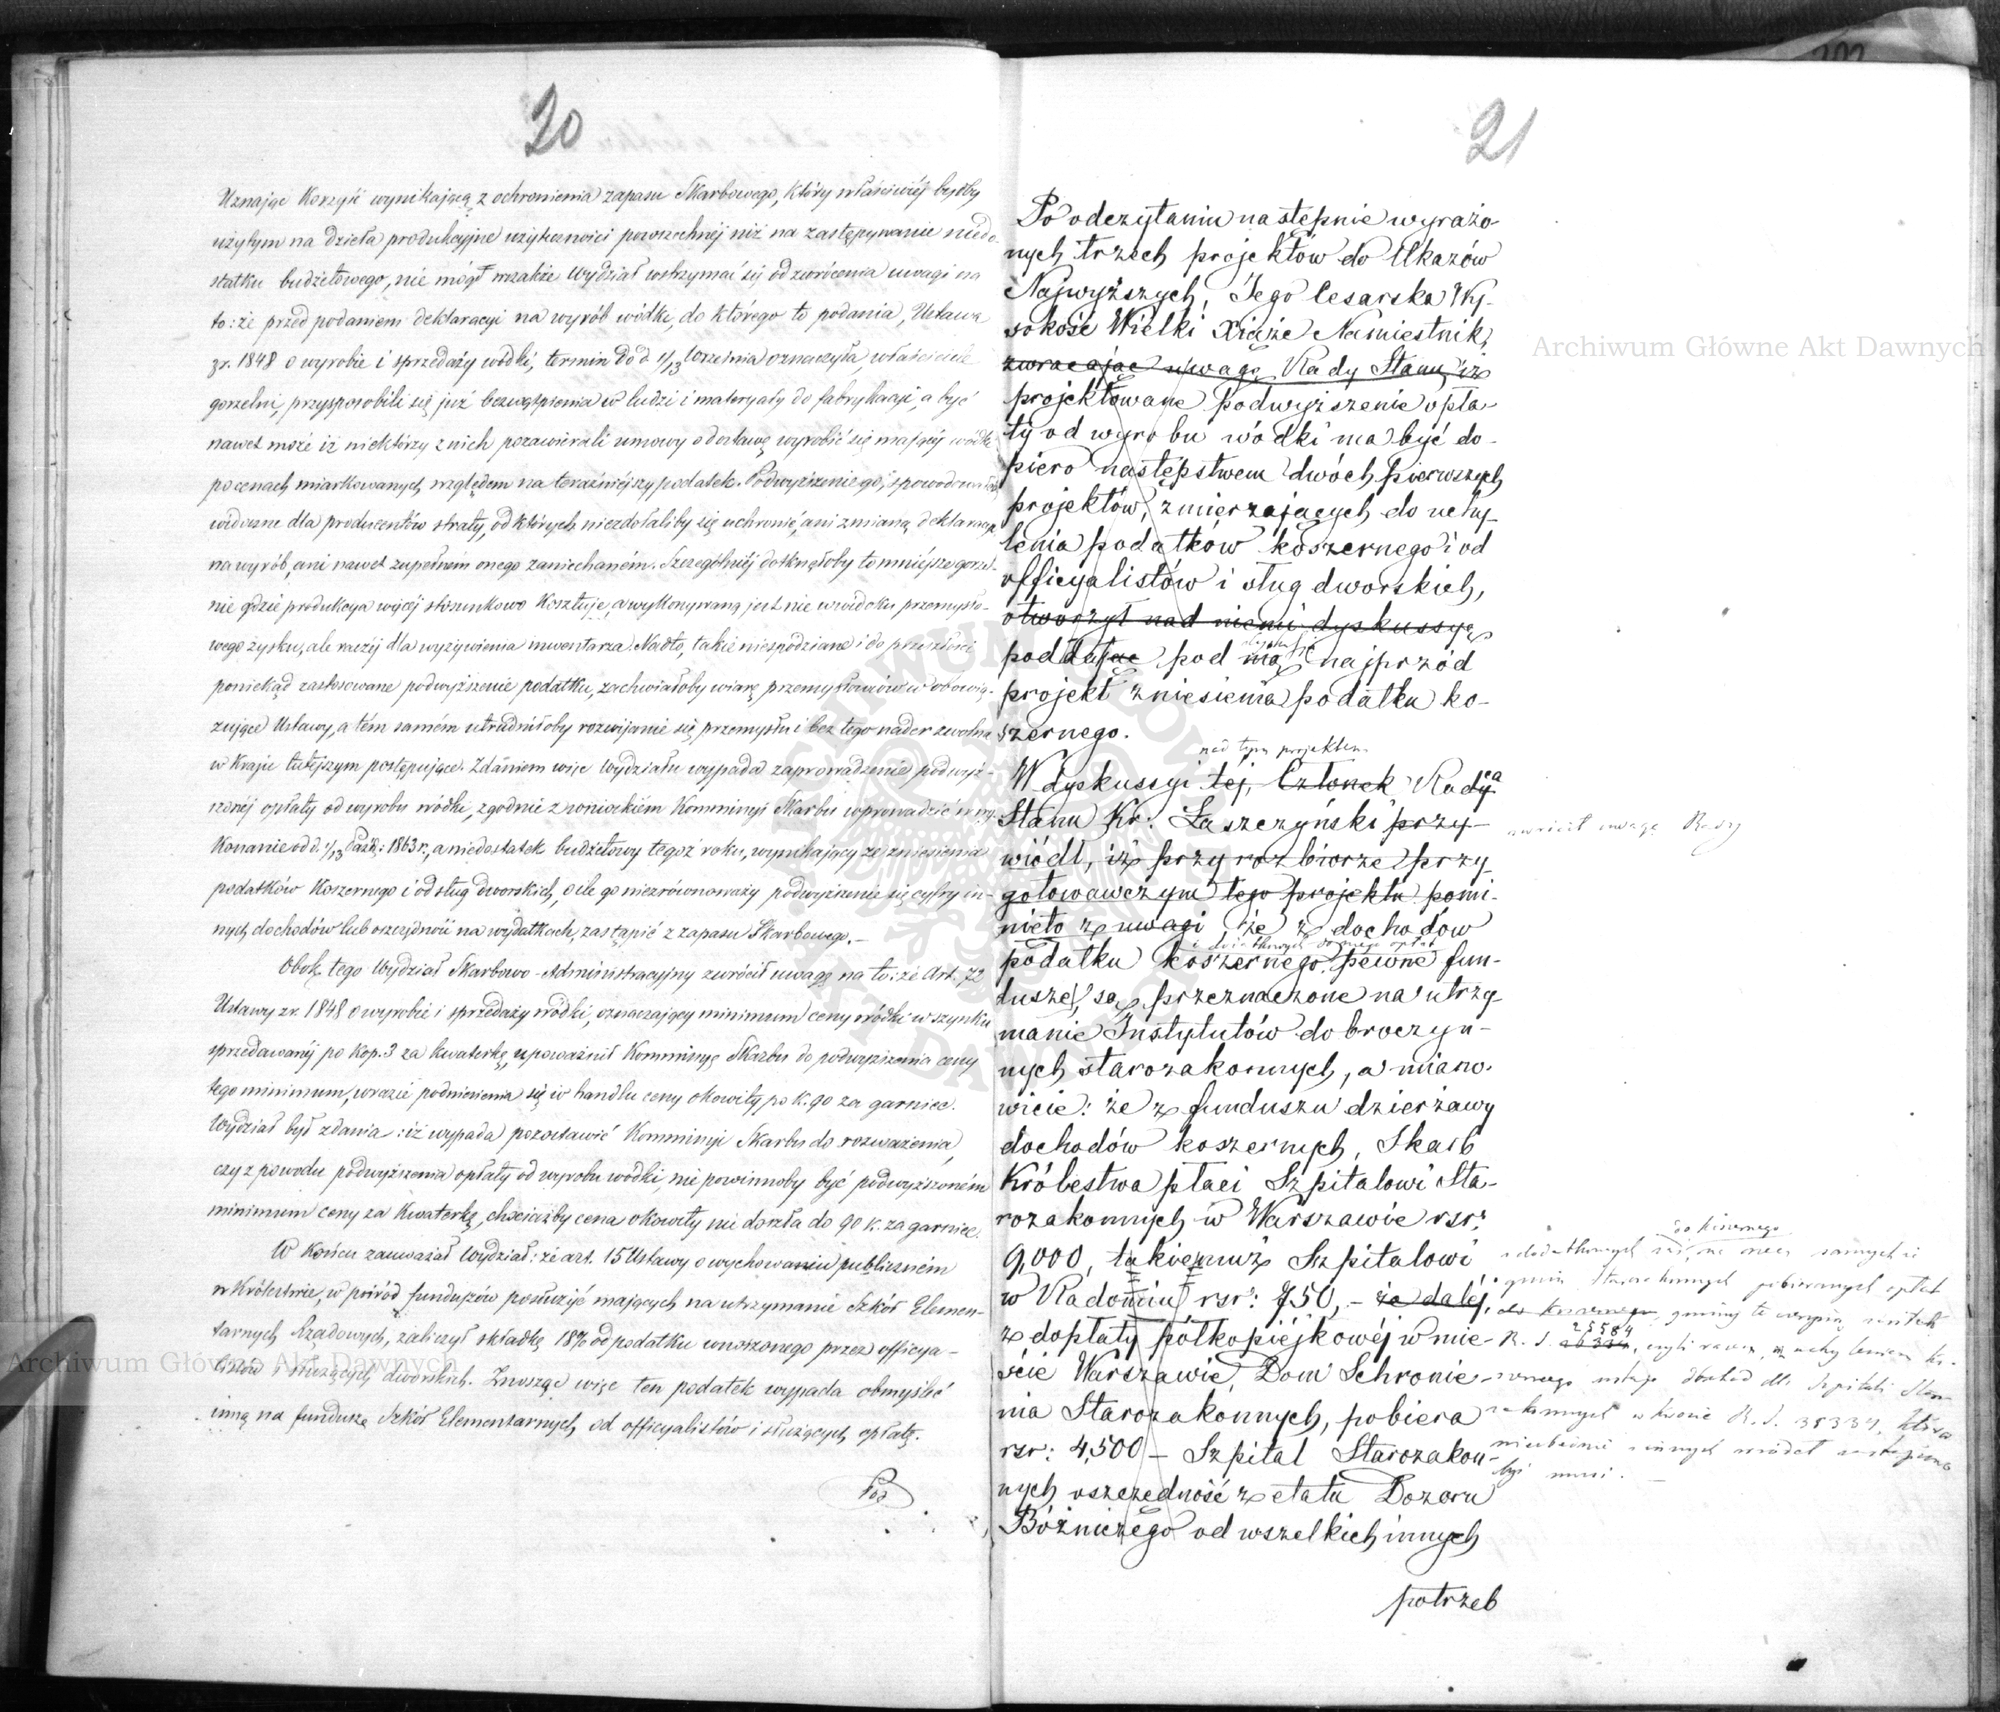 20
Uznając Korzyść wynikającą z ochronienia zapasu Skarbowego, który właściwiéj byłby
użytym na dzieła produkcyjne użyteczności powszechnéj niż na zastępywanie niedo-
statku budżetowego, nie mógł wszakże Wydział wstrzymać się od zwrócenia uwagi na
to: że przed podaniem deklaracyi na wyrób wódki, do którego to podania, Ustawa
z r. 1848 o wyrobie i sprzedaży wódki, termin do d. 1/13 Września oznaczyła, właściciele
gorzelni, przysposobili się już bezwątpienia w ludzi i materyały do fabrykacyi, a być
nawet może iż niektórzy z nich pozawierali umowy o dostawę wyrobić się mającéj wódki
po cenach miarkowanych względem na teraźniejszy podatek. Podwyższenie go, spowodowałoby
widoczne dla producentów straty, od których niezdołaliby się uchronić, ani zmianą deklaracyi
na wyrób, ani nawet zupełném onego zaniechaném. Szczególniéj dotknęłoby to mniejsze gorzel-
nie gdzie produkcya więcéj stosunkowo Kosztuje, a wykonywaną jest nie w widoku przemysło-
wego zysku, ale raczéj dla wyżywienia inwentarza. Nadto, takie niespodziane i do przeszłości
poniekąd zastosowane podwyższenie podatku, zachwiałoby wiarę przemysłowców w obowią-
zujące Ustawy, a tém samém utrudniłoby rozwijanie się przemysłu i bez tego nader zwolna
w Kraju tutejszym postępujące. Zdaniem więc Wydziału wypada zaprowadzenie podwyż-
szonéj opłaty od wyrobu wódki, zgodnie z wnioskiém Kommissyi Skarbu wprowadzić w wy-
Konanie od d. 1/13 Paźd: 1863 r., a niedostatek budżetowy tegoż roku, wynikający ze zniesienia
podatków Koszernego i od sług dworskich, o ile go niezrównoważy podwyższenie się cyfry in-
nych dochodów lub oszczędność na wydatkach, zastąpić z zapasu Skarbowego.—
Obok tego Wydział Skarbowo-Administracyjny zwrócił uwagę na to: że Art. 72
Ustawy z r. 1848 o wyrobie i sprzedaży wódki, oznaczający minimum ceny wódki w szynku
sprzedawanéj po Kop. 3 za kwaterkę, upoważnił Kommissyę Skarbu do podwyższenia ceny
tego minimum, w razie podniesienia się w handlu ceny okowity po K. 90 za garniec.
Wydział był zdania: iż wypada pozostawić Kommissyi Skarbu do rozważenia,
czy z powodu podwyższenia opłaty od wyrobu wódki, nie powinnoby być podwyższoném
minimum ceny za Kwaterkę, chociażby cena okowity nie doszła do 90 k. za garniec.
W Końcu zauważał Wydział: że art. 15 Ustawy o wychowaniu publiczném
w Królestwie, w pośród funduszów posłużyć mających na utrzymanie Szkół Elemen-
tarnych Rządowych, zaliczył składkę 18% od podatku wnoszonego przez officya-
listów i służących dworskich. Znosząc więc ten podatek wypada obmyślić
inną na fundusz Szkół Elementarnych, od officyalistów i służących opłatę.
Po
21
Po odczytaniu następnie wyrażo-
nych trzech projektów do Ukazów
Najwyższych, Jego Cesarska Wy-
sokość Wielki Xiąże Namiestnik,
zwracając uwagę Rady Stanu, iż
projektowane podwyższenie opła-
ty od wyrobu wódki ma być do-
piero następstwem dwóch pierwszych
projektów, zmierzających do uchy-
lenia podatków koszernego i od
officyalistów i sług dworskich,
otworzył nad niemi dyskussyę
poddając pod nią najprzód
projekt zniesienia podatku ko-
szernego.
nad tym projektem
W dyskussyi tej, Członek Radca
Stanu Kr: Łaszczyński przy-
zwrócił uwagę Rady
wiódł, iż przy rozbiorze przy
gotowawczym tego projektu pomi-
nięto z uwagi, że z dochodów
i dodatkowych do niego opłat
podatku koszernego, pewne fun-
dusze, są przeznaczone na utrzy
manie Instytutów dobroczyn-
nych starozakonnych, a miano-
wicie: że z funduszu dzierżawy
dochodów koszernych, Skarb
Królestwa płaci Szpitalowi Sta-
rozakonnych w Warszawie rsr:
9,000, takiemuż Szpitalowi
w Radomiu rsr: 750,- że daléj,
z dopłaty półkopiéjkowéj w mie-
ście Warszawie, Dom Schronie-
nia Starozakonnych, pobiera
rsr: 4,500 – Szpital Starozakon-
nych oszczędność z etatu Dozoru
Bóżniczego od wszelkich innych
potrzeb
do koszernego
z dodatkowych zaś, na rzecz samych że
gmin Starozakonnych pobieranych opłat
do koszernego, gminy te
25584
R. S. , czyli razem, z uchyleniem ko-
szernego ustaje dochód dla Szpitali Staro
zakonnych w kwocie R. S. 35334, która
niezbędnie z innych źródeł zastąpiona
być musi. –
Archiwum Główne Akt Dawnych
Archiwum Główne Akt Dawnych